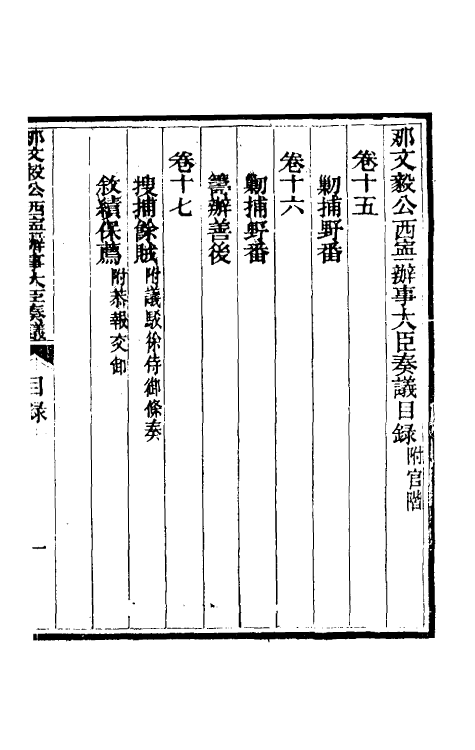 那文毅公西寧辦事大臣奏議目錄附官階
卷十五
勦捕野番
卷十六
勦捕野番
籌辦善後
卷十七
搜捕餘賊附議駁徐侍御條奏
敘績保薦附恭報交卸
那文毅公西寧辦事大臣奏議 目錄 一